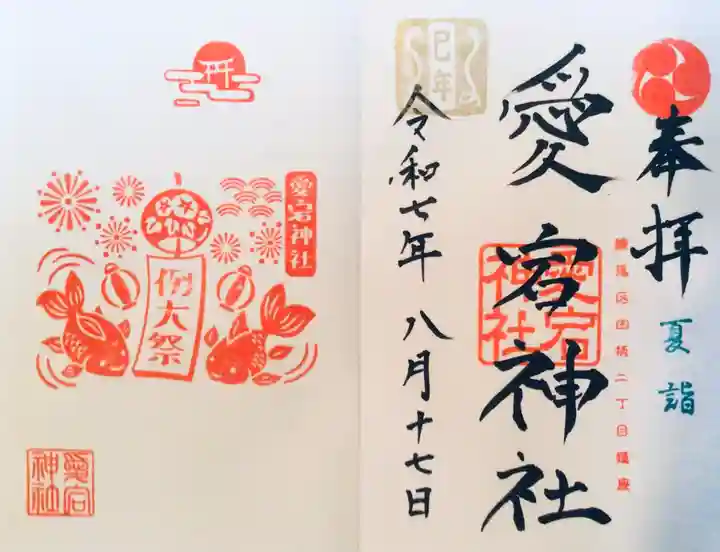 奉拝
夏詣
練馬区田柄二丁目鎮座
愛宕神社
愛宕神社
巳年
令和七年 八月十七日
愛宕神社
例大祭
愛宕神社